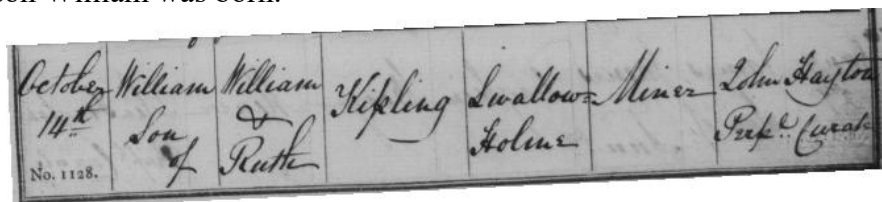 son William was born.
October
14th
No. 1128.
William
Son
of
William
&
Ruth
Kipling
Swallow=
Holme
Miner
John Hayton
Perpl. Curate